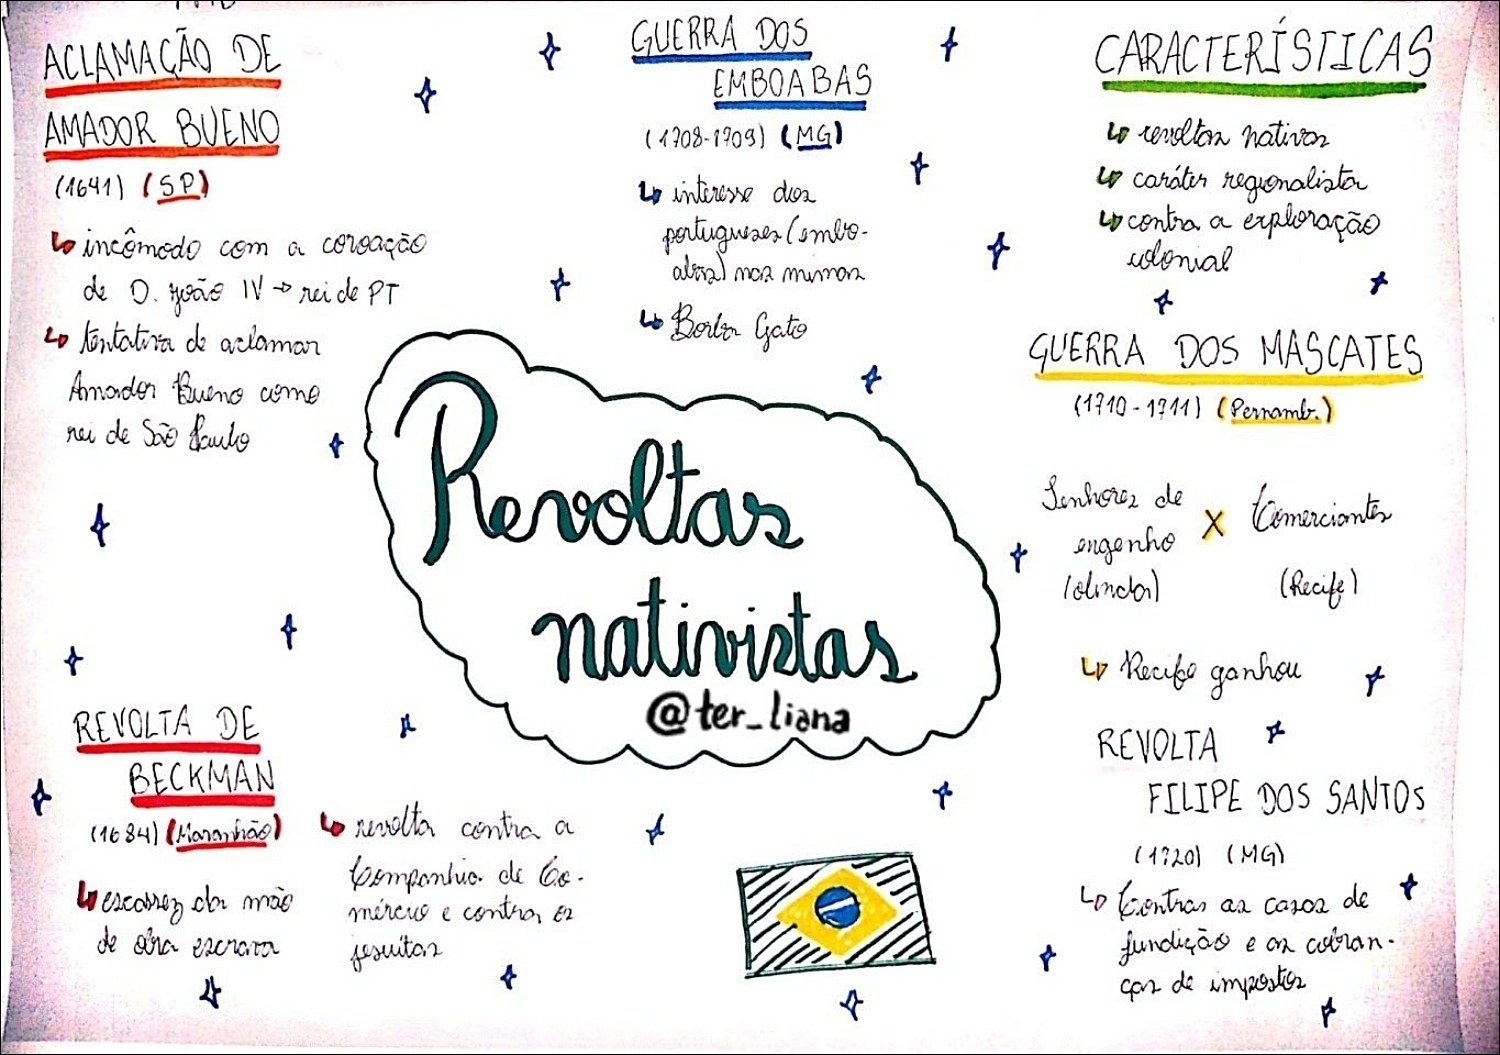 ACLAMAÇÃO DE
AMADOR BUENO
(1641) (SP)
incômodo com a coroação
de D. João IV → rei de PT
tentativa de aclamar
Amador Bueno como
rei de São Paulo
GUERRA DOS
EMBOABAS
(1708-1709) (MG)
interesse dos
portugueses (embo-
abas) nas minas
Borba Gato
CARACTERÍSTICAS
revoltas nativas
caráter regionalista
contra a exploração
colonial
GUERRA DOS MASCATES
(1710-1711) (Pernamb.)
Senhores de
engenho
(Olinda)
X
Comerciantes
(Recife)
Recife ganhou
Revoltas
nativistas
@ter_liana
REVOLTA DE
BECKMAN
(1684) (Maranhão)
escassez da mão
de obra escrava
revolta contra a
Companhia de Co-
mércio e contra os
jesuítas
REVOLTA
FILIPE DOS SANTOS
(1720) (MG)
Contras as casas de
fundição e as cobran-
ças de impostos